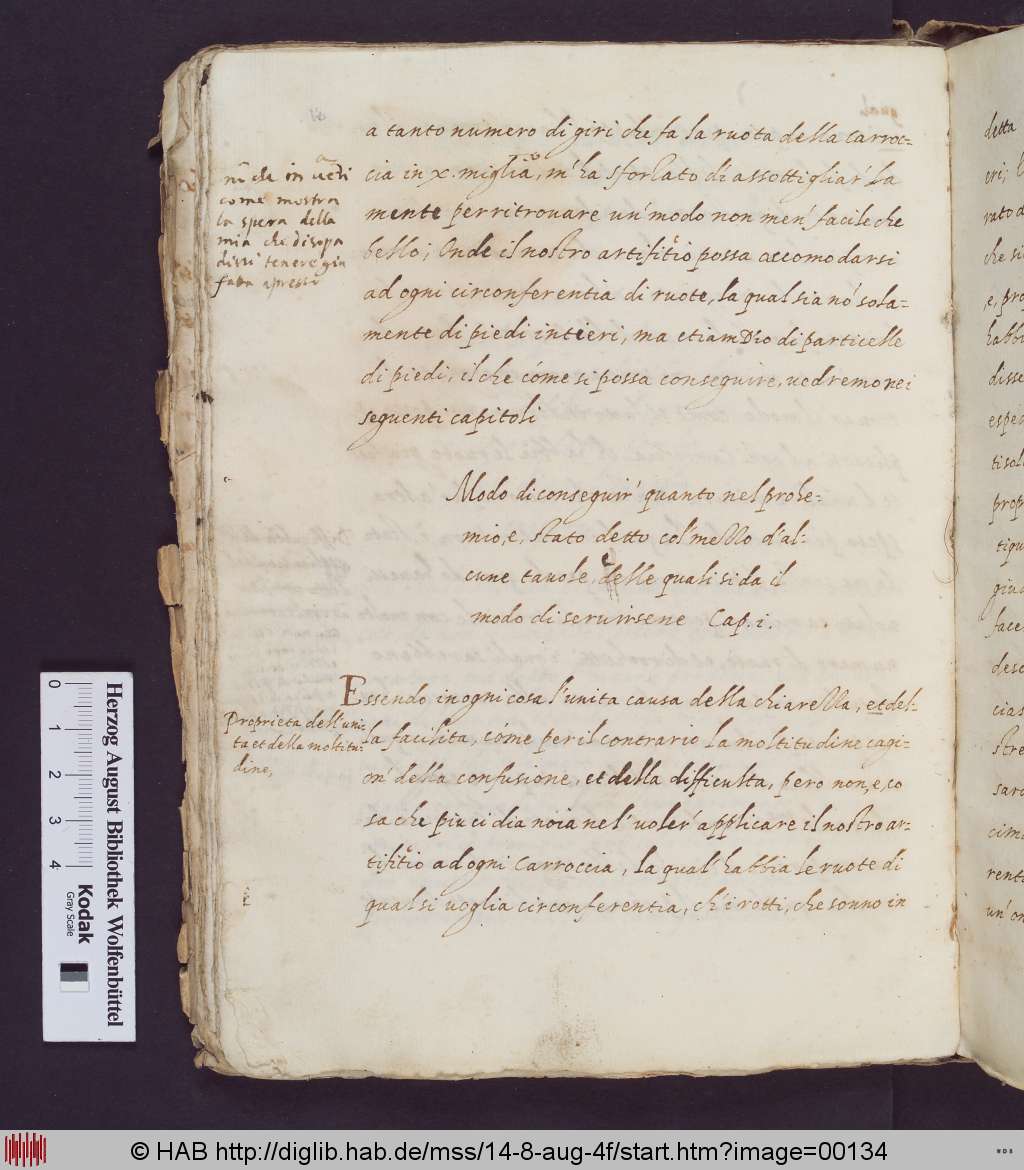 a tanto numero di giri che fa la ruota della carroc=
cia in x. miglia, m'ha sforzato di assottigliar' la
mente per ritrovare un' modo non men' facile che
bello; Onde il nostro artifitio possa accomodarsi
ad ogni circonferentia di ruote, la qual sia no' sola=
mente di piedi intieri, ma etiamDio di particelle
di piedi, il che cóme si possa conseguire, uedremo nei
seguenti capitoli
come mostra
la spera della
mia che disopa
dissi tenere
Modo di conseguir' quanto nel prohe=
mio, e, stato detto col' mezzo d'al=
cune tauole, delle quali si da il
modo di seruirsene Cap. i.
Essendo in ogni cosa l'unita causa della chiarezza, et del=
la facilita, cóme per il contrario la moltitudine cagi=
on' della confusione, et della difficulta, pero non, e, co
sa che piu ci dia noia nel' uoler' applicare il nostro ar=
tifitio ad ogni Carroccia, la qual' habbia le ruote di
qual si uoglia circonferentia, ch' i rotti, che sonno in
Proprieta dell' uni=
ta et della moltitu=
dine,
detta
rato
che si
e, pro
habbi
disse
prop
tiqu
face
desc
cias
stre
saro
cim
rent
un' on
0 1 2 3 4
Herzog August Bibliothek Wolfenbüttel
Kodak
Gray Scale
© HAB http://diglib.hab.de/mss/14-8-aug-4f/start.htm?image=00134